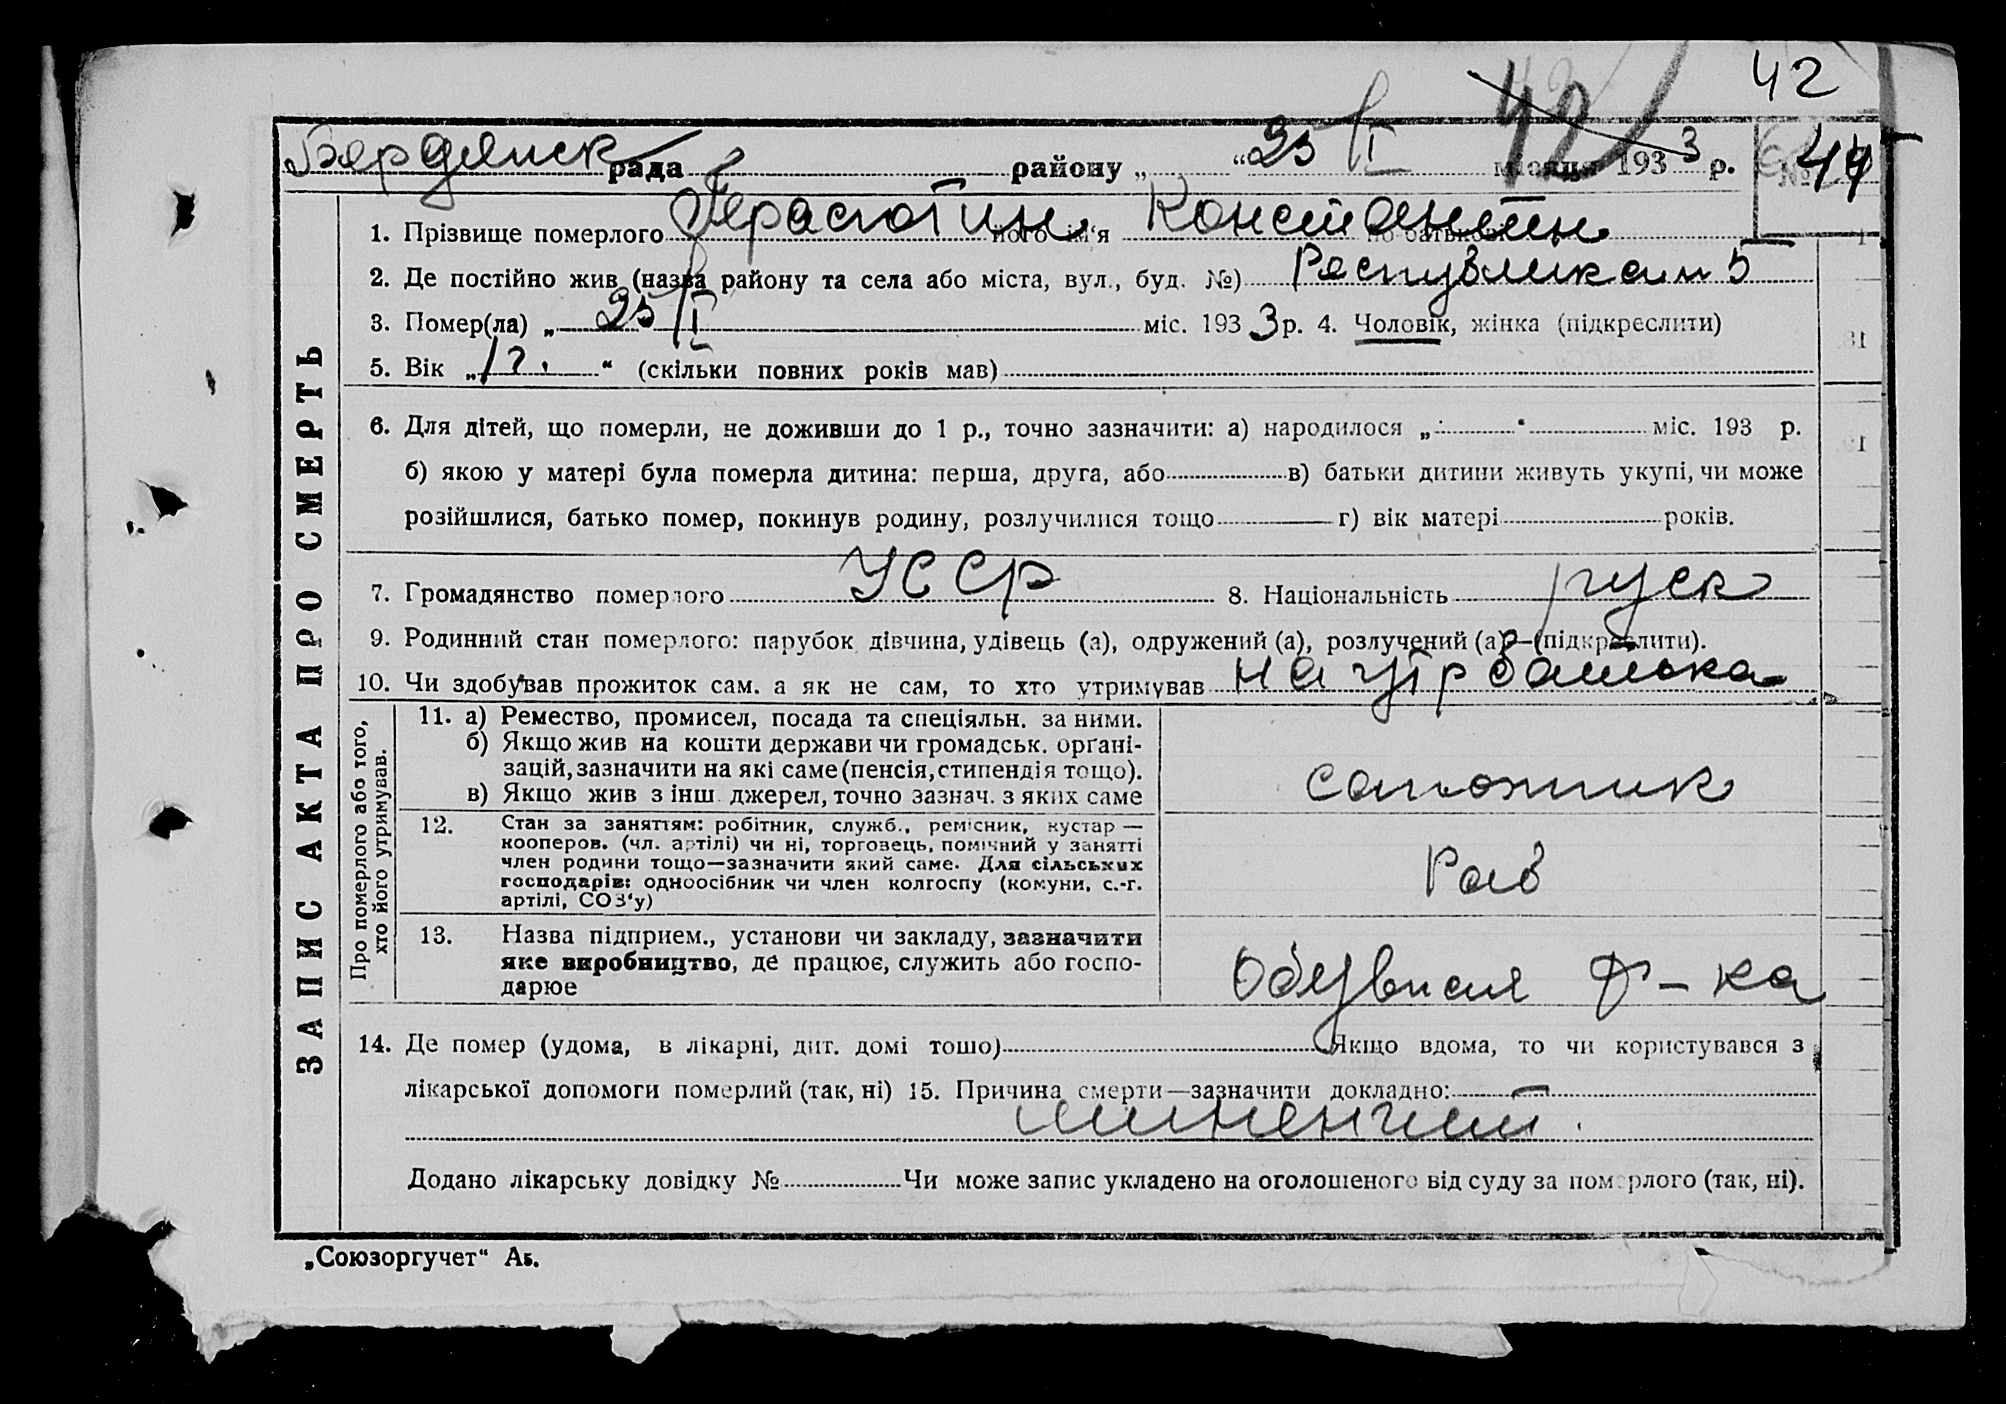 42
42
Бердянск рада района „ “ 25/I місяця 1933 р. № 44
1. Прізвище померлого його ім'я Константин по батькові
2. Де постійно жив (назва району та села або міста, вул., буд. №) 5
3. Помер(ла) „ 25/I міс. 193 3 р. 4. Чоловік, жінка (підкреслити)
5. Вік „ 1 г. “ (скільки повних років мав)
6. Для дітей, що померли, не доживши до 1 р., точно зазначити: а) народилося „ “ міс. 193 р.
б) якою у матері була померла дитина: перша, друга, або в) батьки дитини живуть укупі, чи може
розійшлися, батько помер, покинув родину, розлучилися тощо г) вік матері років.
7. Громадянство померлого УССР 8. Національність руск
9. Родинний стан померлого: парубок, дівчина, удівець (а), одружений (а), розлучений (а)—(підкреслити).
10. Чи здобував прожиток сам. а як не сам, то хто утримував на утр батька
Про померлого або того,
хто його утримував.
11. а) Ремество, промисел, посада та спеціяльн. за ними.
б) Якщо жив на кошти держави чи громадськ. органі-
зацій, зазначити на які саме (пенсія, стипендія тощо).
в) Якщо жив з інш. джерел, точно зазнач. з яких саме
сапожник
12. Стан за заняттям: робітник, служб., ремісник, кустар —
кооперов. (чл. артілі) чи ні, торговець, помічний у занятті
член родини тощо—зазначити який саме. Для сільських
господарів: одноосібник чи член колгоспу (комуни, с.-г.
артілі, СОЗ'у)
Раб
13. Назва підприєм., установи чи закладу, зазначити
яке виробництво, де працює, служить або госпо-
дарює
Обувная ф-ка
14. Де помер (удома, в лікарні, дит. домі тошо) Якщо вдома, то чи користувався з
лікарської допомоги померлий (так, ні) 15. Причина смерти—зазначити докладно:
менингит.
Додано лікарську довідку № Чи може запис укладено на оголошеного від суду за померлого (так, ні).
ЗАПИС АКТА ПРО СМЕРТЬ
„Союзоргучет“ Аъ.